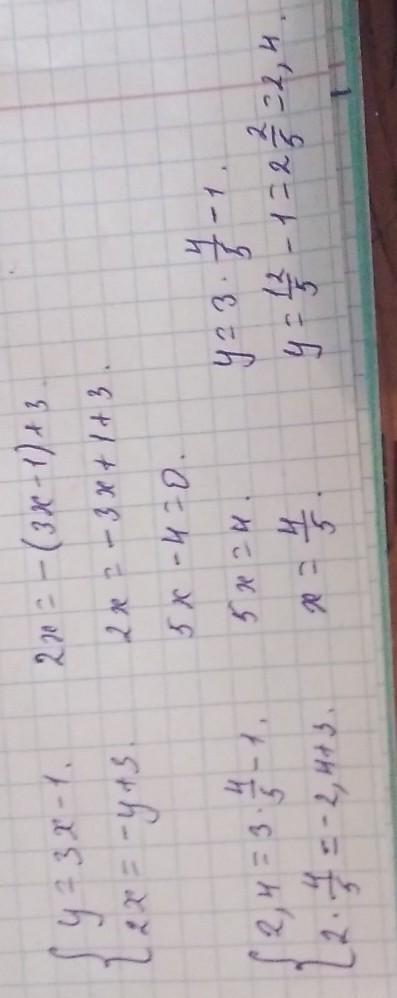 { y = 3x - 1.
{ 2x = -y + 3.
2x = -(3x - 1) + 3
2x = -3x + 1 + 3.
5x - 4 = 0.
5x = 4.
x = 4/5.
y = 3 · 4/5 - 1.
y = 12/5 - 1 = 2 2/5 = 2,4.
{ 2,4 = 3 · 4/5 - 1.
{ 2 · 4/5 = -2,4 + 3.